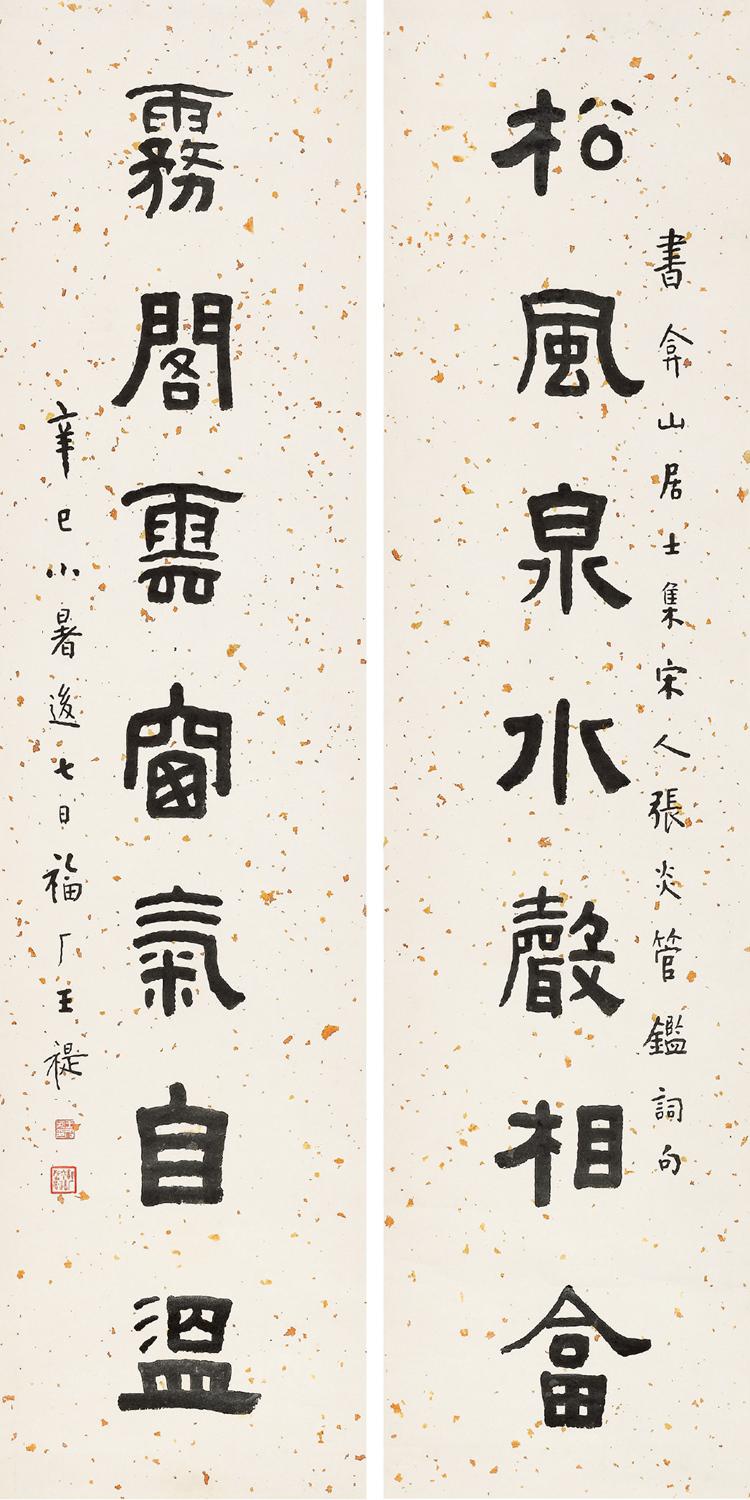 松風泉水聲相畣
書弇山居士集宋人張炎管鑑詞句
霧閣雲窗氣自溫
辛巳小暑後七日福厂王禔